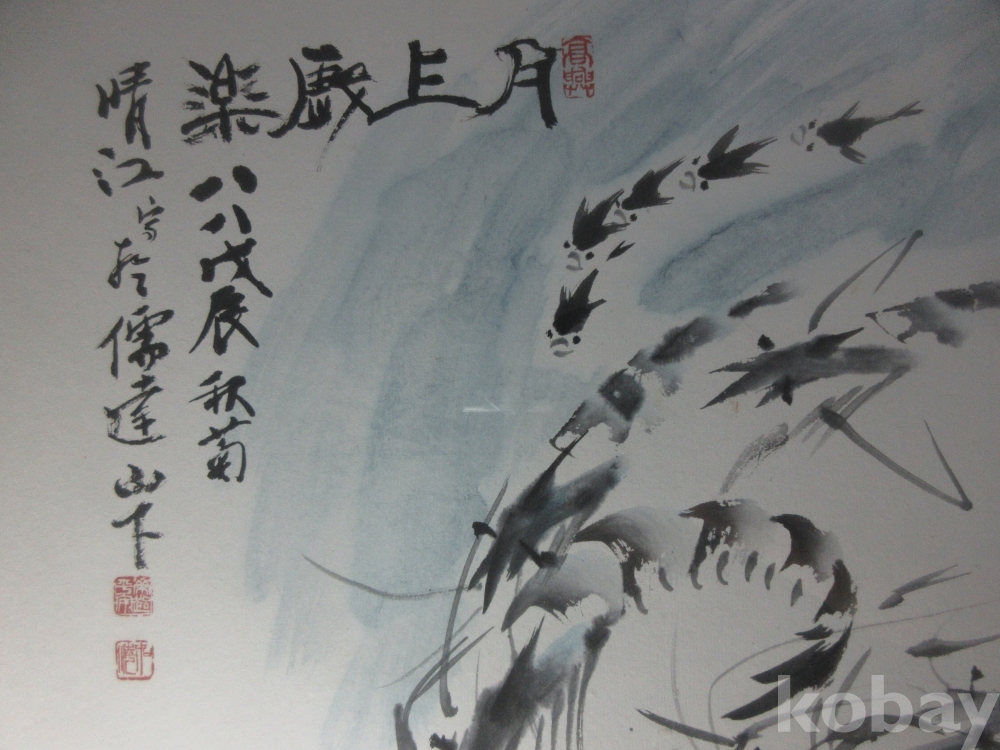 月上戲楽
八八戊辰秋菊
晴江写於儒達山下
kobay